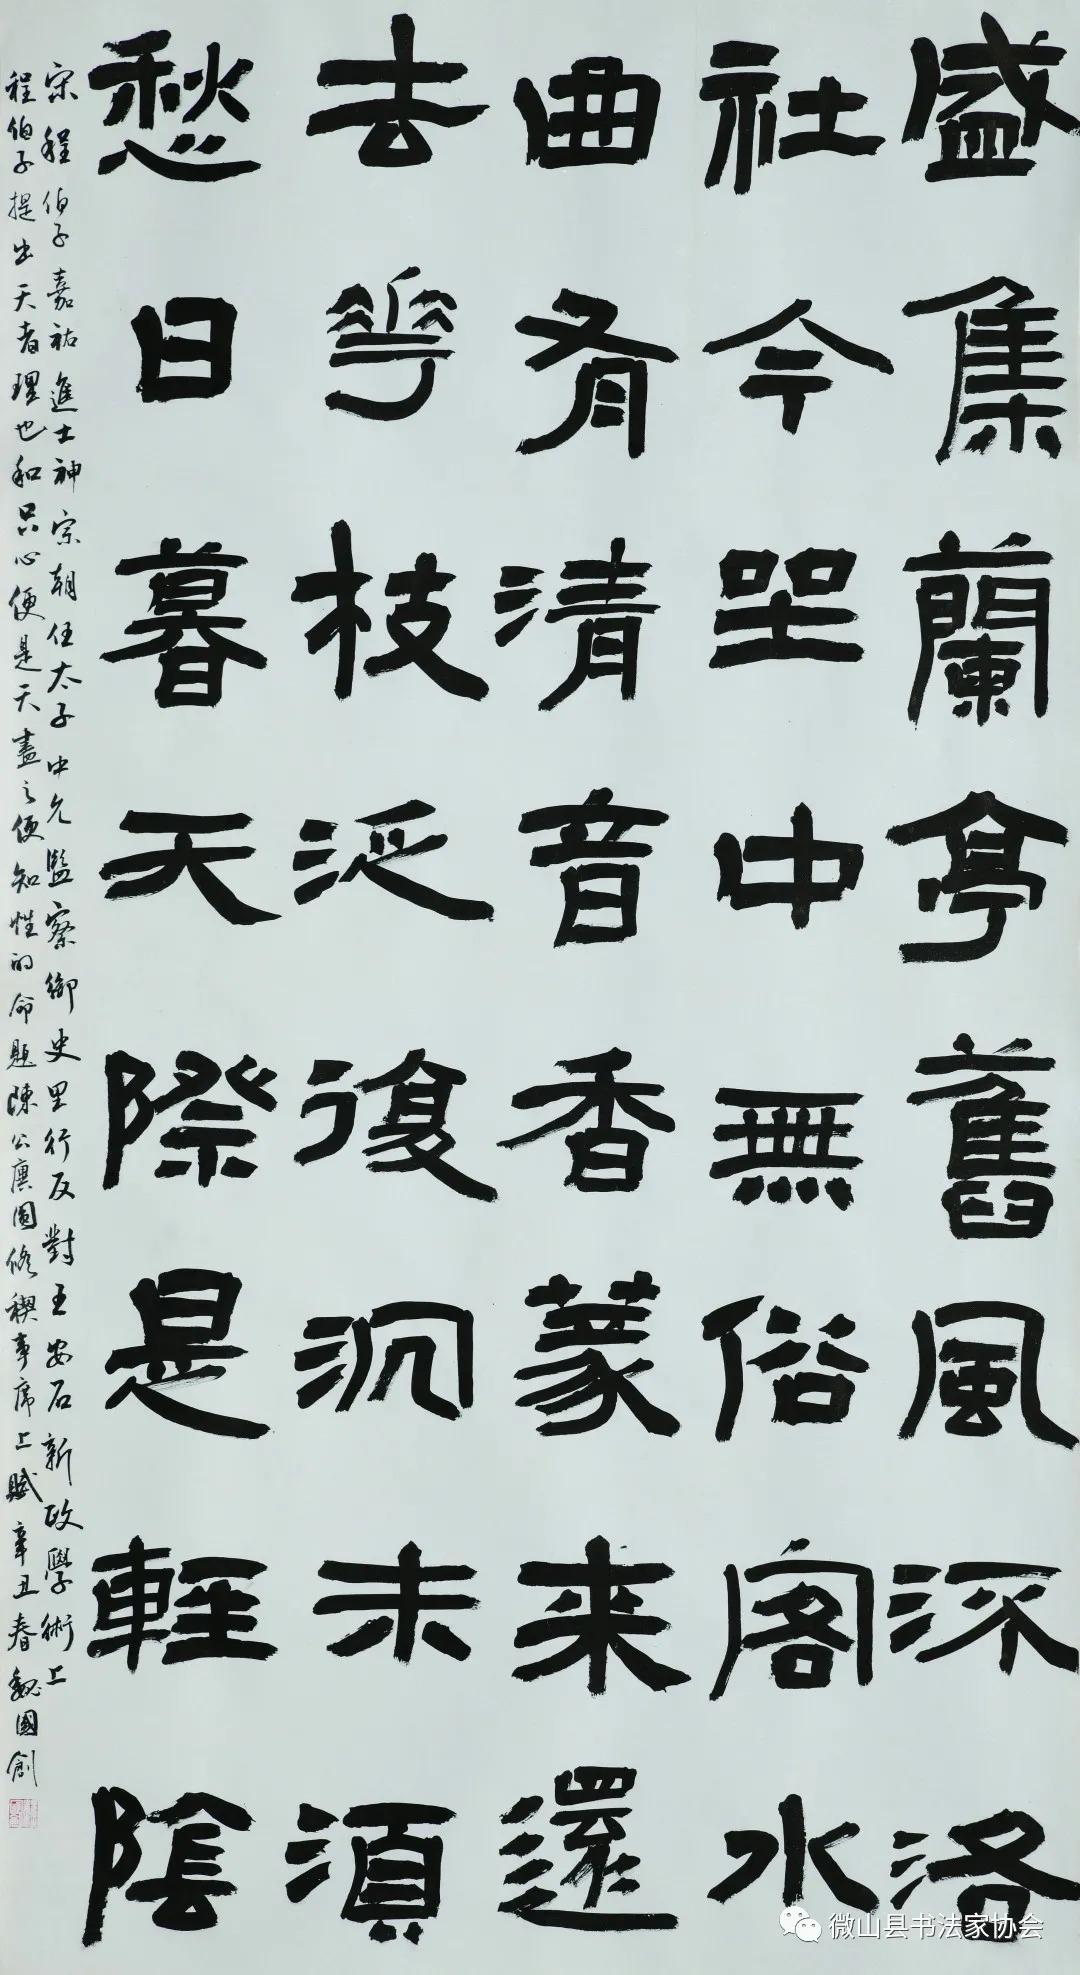 盛集蘭亭舊風流洛
社今坐中無俗客水
曲有清音香篆来還
去花枝泛復沉未須
愁日暮天際是輕陰
宋程伯子嘉祐進士神宗朝任太子中允監察御史里行反對王安石新政學術上
程伯子提出天者理也和只心便是天盡之便知性的命題陳公廙園修禊事席上賦辛丑春魏國創
微山县书法家协会